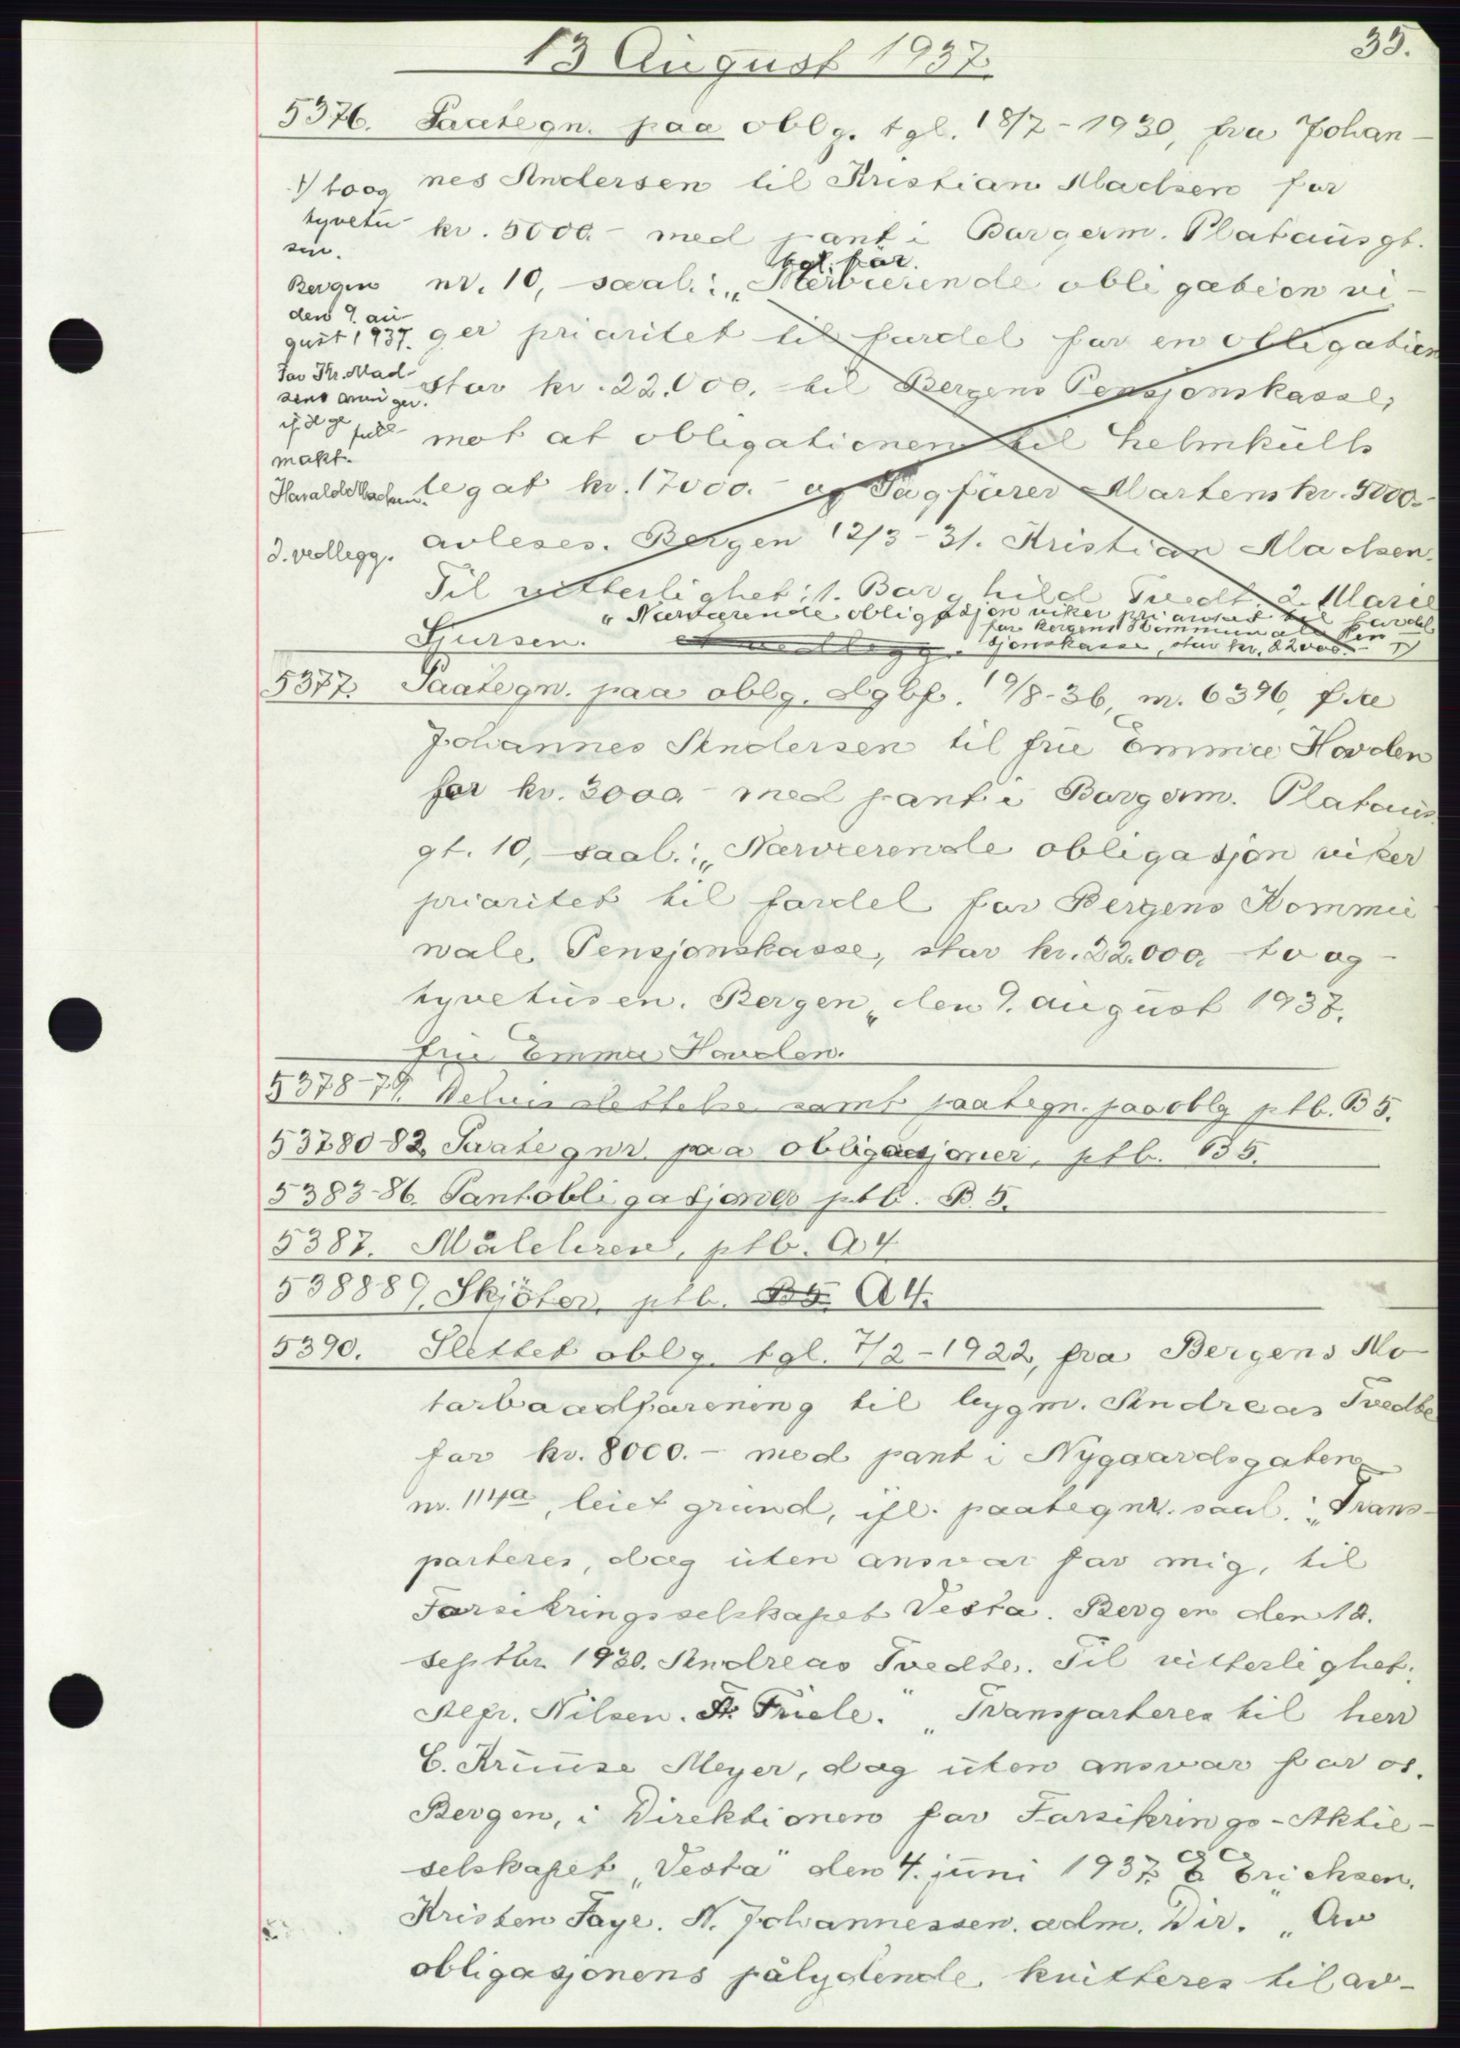 13 August 1937.
35.
5376. Paategn. paa oblg. tgl. 18/7-1930, fra Johan-
nes Andersen til Kristian Madsen for
kr. 5000.- med pant i Borgerm. Platousgt.
tgl. før
nr. 10, saal.: „Nærværende obligation vi-
ger prioritet til fordel for en obligation
stor kr. 22.000.- til Bergens Pensjonskasse,
mot at obligationen til Helmkülls
legat kr. 17000.- og Sagfører Martens kr. 5000.-
avleses. Bergen 12/3-31. Kristian Madsen.
Til vitterlighet: 1. Borghild Tvedt. 2. Marie
Sjursen.
„Nærværende obligasjon viker prioritet til fordel
for Bergens Kommunale Pen-
sjonskasse, stor kr. 22000.- 1)
1) to og
tyvetu-
sen.
Bergen
den 9. au-
gust 1937.
For Kr. Mad-
sens arvinger.
ifølge full-
makt.
Harald Madsen.
3. vedlegg.
5377. Paategn. paa oblg. dgbf. 19/8-36, nr. 6396, fra
Johannes Andersen til frue Emma Hovden
for kr. 3000.- med pant i Borgerm. Platous
gt. 10, saal.: „Nærværende obligasjon viker
prioritet til fordel for Bergens Kommu
nale Pensjonskasse, stor kr. 22.000.- to og-
tyvetusen. Bergen „den 9. august 1937.
fru Emma Hovden.
5378-79. Delvis slettelse samt paategn. paa oblg ptb. B 5.
53780-82. Paategnr. paa obligasjoner, ptb. B 5.
5383-86. Pantobligasjoner ptb. B. 5.
5387. Målebrev, ptb. A 4
538889. Skjöter, ptb. B5. A 4.
5390. Slettet oblg. tgl. 7/2-1922, fra Bergens Mo-
torbaadforening til bygm. Andreas Tvedte
for kr. 8000.- med pant i Nygaardsgaten
nr. 114a, leiet grund, ifl. paategnr. saal.: „Trans-
porteres, dog uten ansvar for mig, til
Forsikringsselskapet Vesta. Bergen den 12.
septbr. 1930. Andreas Tvedte. Til vitterlighet:
Alfr. Nilsen. Fr. Friele.“ „Transporteres til herr
C. Kruuse Meyer, dog uten ansvar for os.
Bergen, i Direktionen for Forsikrings-Aktie-
selskapet „Vesta“ den 4. juni 1937. E Erichsen.
Kristen Faye. N. Johannessen. adm. Dir.“ „Av
obligasjonens pålydende kvitteres til av-